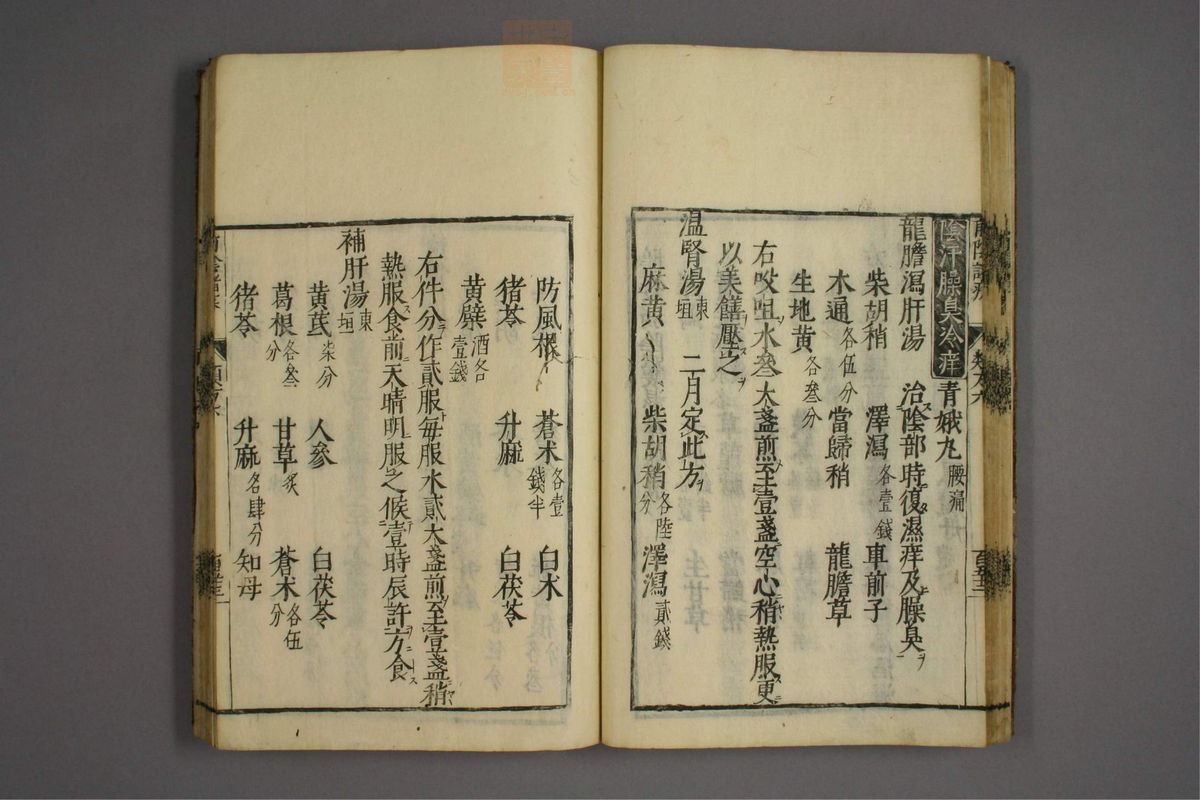 陰汗臊臭冷痒 青娥丸 腰痛
龍膽瀉肝湯 治陰部時復濕痒及臊臭
柴胡稍 澤瀉 各壹錢 車前子
木通 各伍分 當歸稍 龍膽草
生地黄 各叄分
右㕮咀水叄大盞煎至壹盞空心稍熱服更
以美饍壓之
温腎湯 東垣 二月定此方
麻黄 柴胡稍 各陸分 澤瀉 貳錢
防風根 蒼术 各壹錢半 白术
猪苓 升麻 白茯苓
黄蘗 酒各壹錢
右件分作貳服每服水貳大盞煎至壹盞稍
熱服食前天晴明服之候壹時辰許方食
補肝湯 東垣
黄芪 柒分 人參 白茯苓
葛根 各叄分 甘草 炙 蒼术 各伍分
猪苓 升麻 各肆分 知母